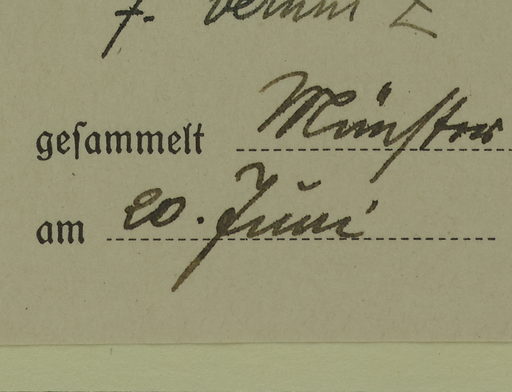 f. vernum L
gesammelt Münster
am 20. Juni